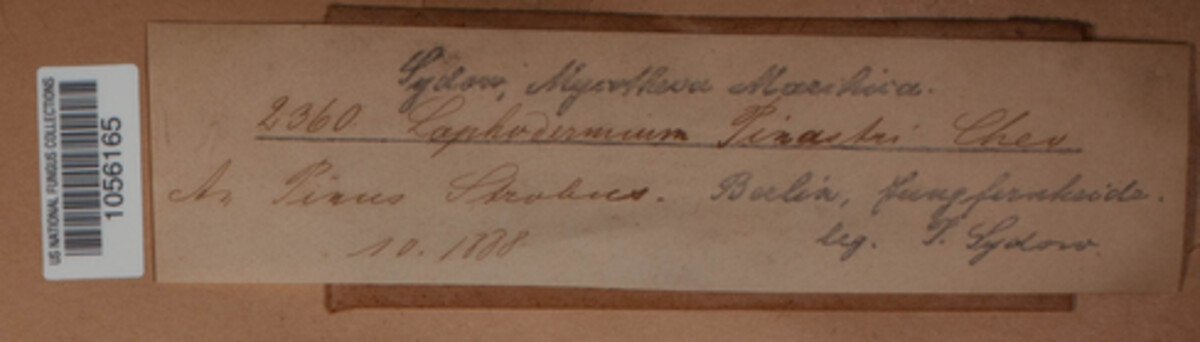 US NATIONAL FUNGUS COLLECTIONS
1056165
Sydow, Mycotheca Marchica.
2360 Lophodermium Pinastri Chev
An Pinus Strobus. Berlin, Jungfernheide.
10. 1888 leg. P. Sydow.